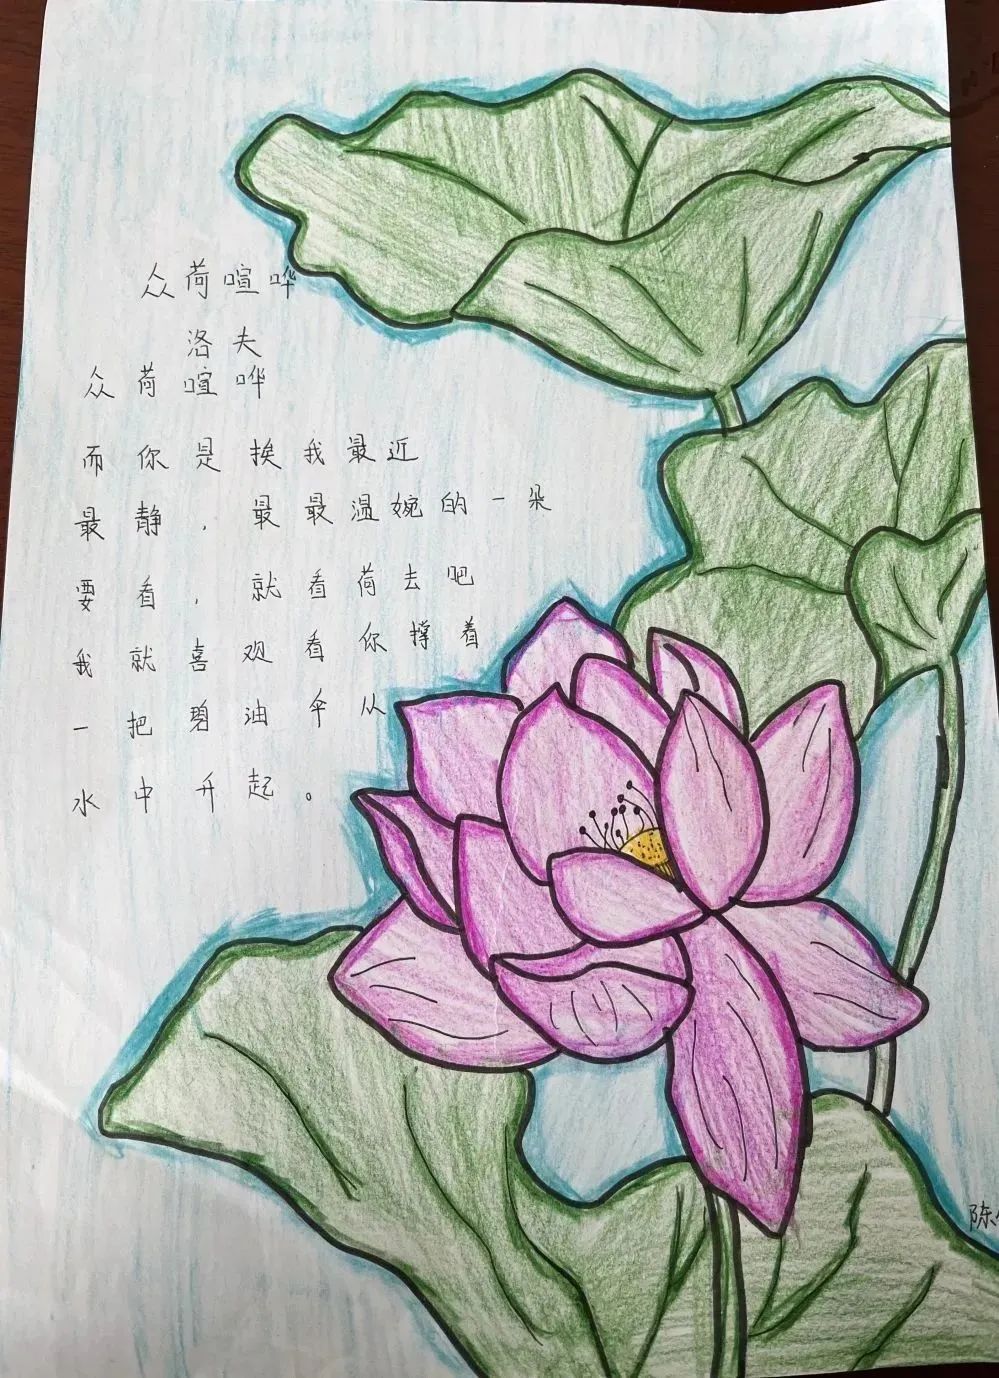 众荷喧哗
洛夫
众荷喧哗
而你是挨我最近
最静,最最温婉的一朵
要看,就看荷去吧
我就喜观看你撑着
一把碧油伞从
水中升起。
陈